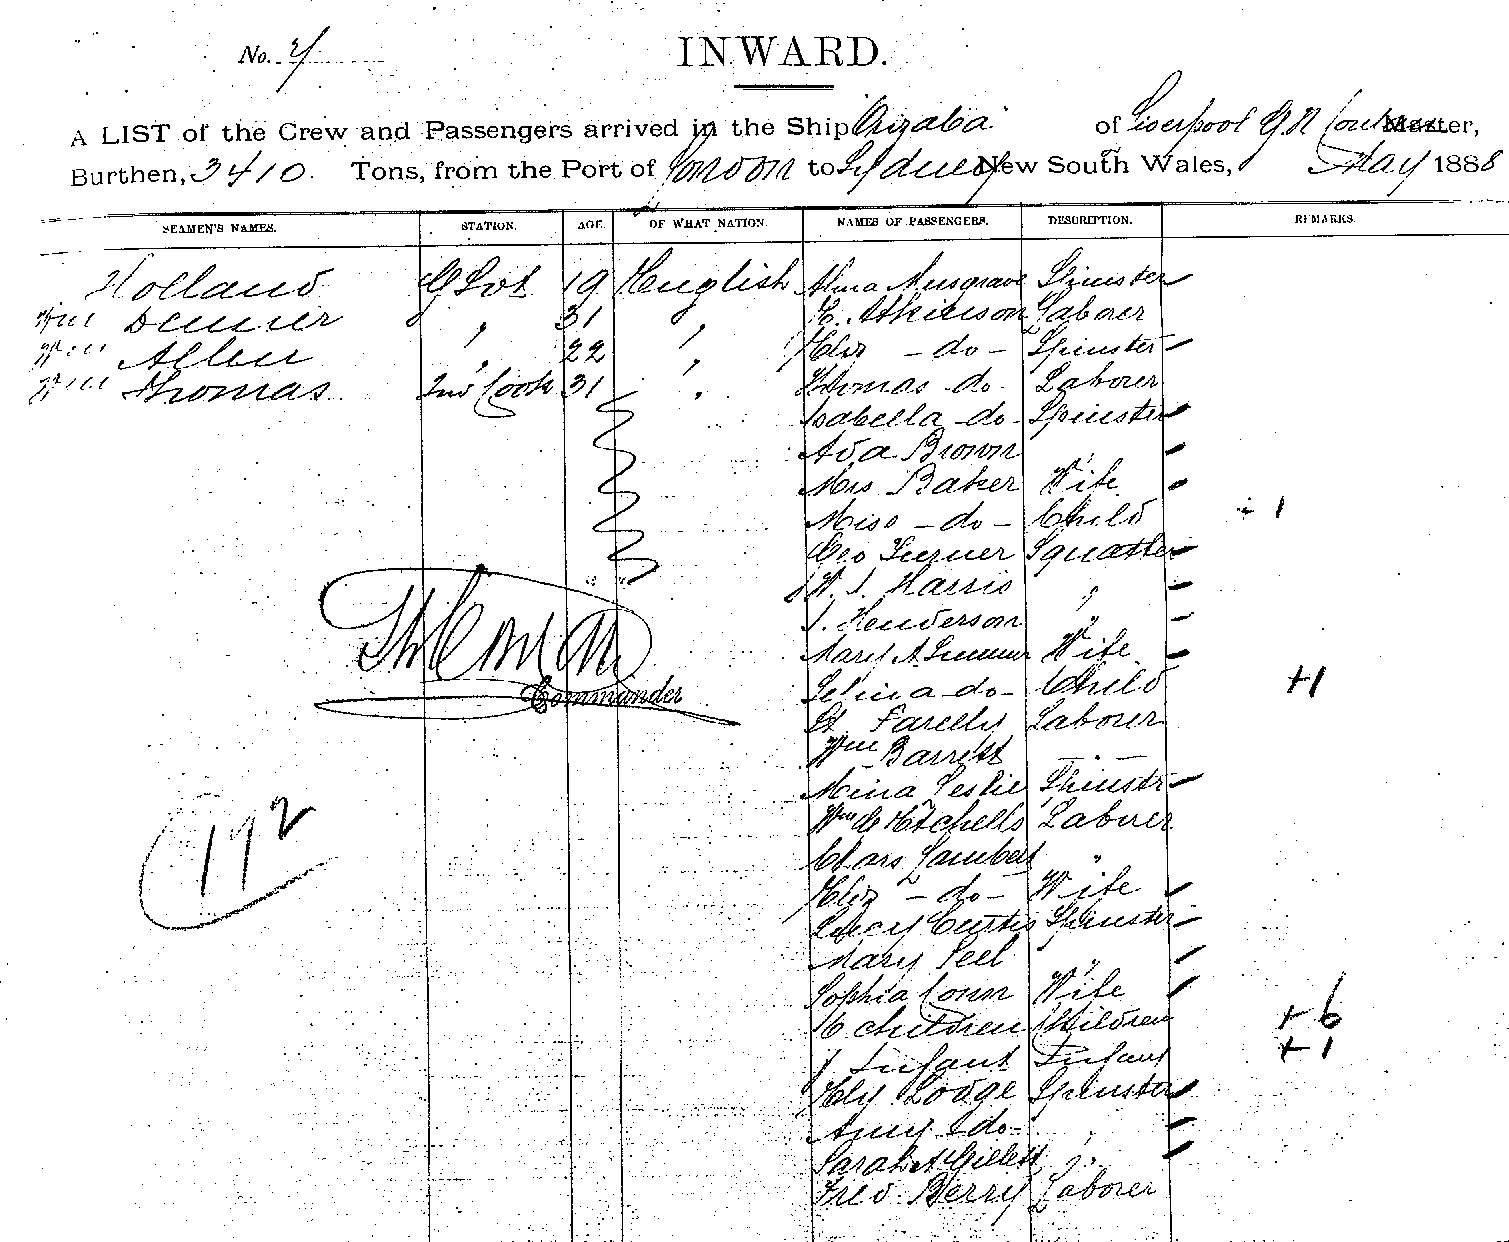 No. 4
INWARD.
A LIST of the Crew and Passengers arrived in the Ship Orizaba of Liverpool G.N. Conlan Master,
Burthen, 3410. Tons, from the Port of London to Sydney New South Wales, May 1888
SEAMEN'S NAMES. STATION. AGE. OF WHAT NATION. NAMES OF PASSENGERS. DESCRIPTION. REMARKS.
Holland 19 English Alma Musgrave Spinster
Wm Denner " 31 " E. Atkinson Laborer
Wm Allen " 22 " Eliz - do - Spinster
Wm Thomas Cook 31 " Thomas do Laborer
Isabella do - Spinster
Ada Brown "
Mrs Baker Wife
Miss - do - Child + 1
Geo Turner Squatter
W. J. Harris "
J. Henderson "
Mary A. Wife
Selina do - Child +1
Farelly Laborer
Wm Barrett - " -
Commander
Mina Leslie Spinster
Wm Mitchells Laborer
Chars Lambert "
192
Eliz - do - Wife
Lucy Curtis Spinster
Mary Peel "
Sophia Conn Wife
6 children Children + 6
1 Infant Infant + 1
Ely Lodge Spinster
Amy do "
Sarah A Gillett "
Fred Berry Laborer